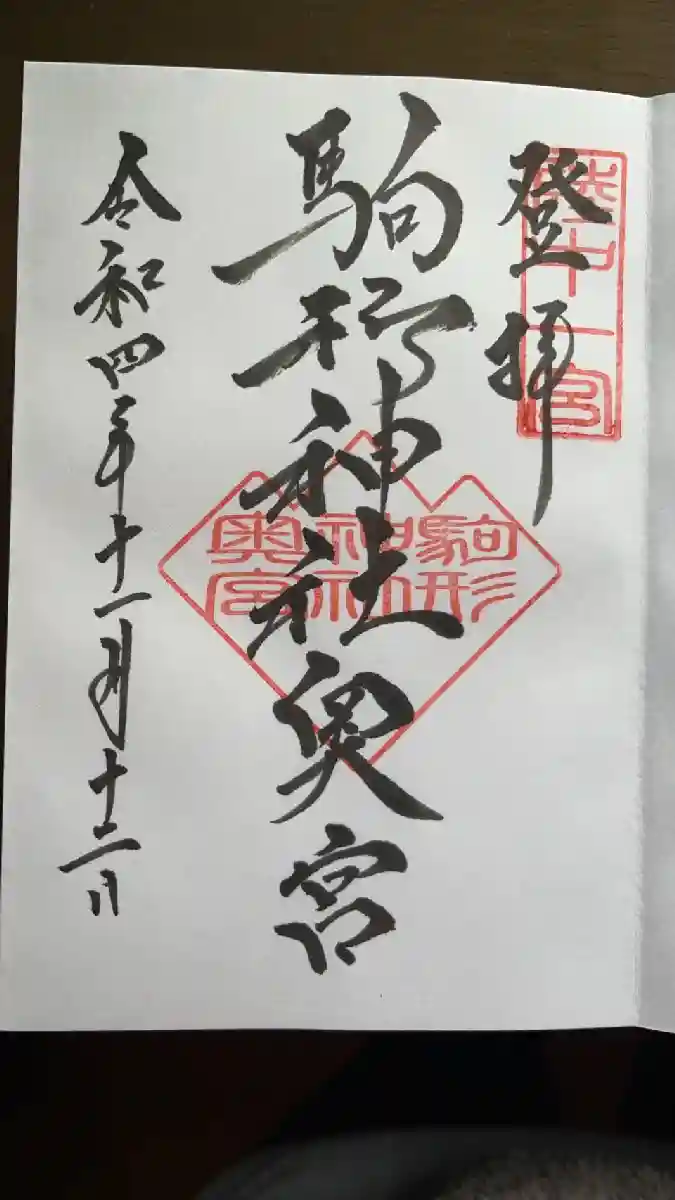 登拝
陸中一宮
駒形神社奥宮
駒形
神社
奥宮
令和四年十一月十二日